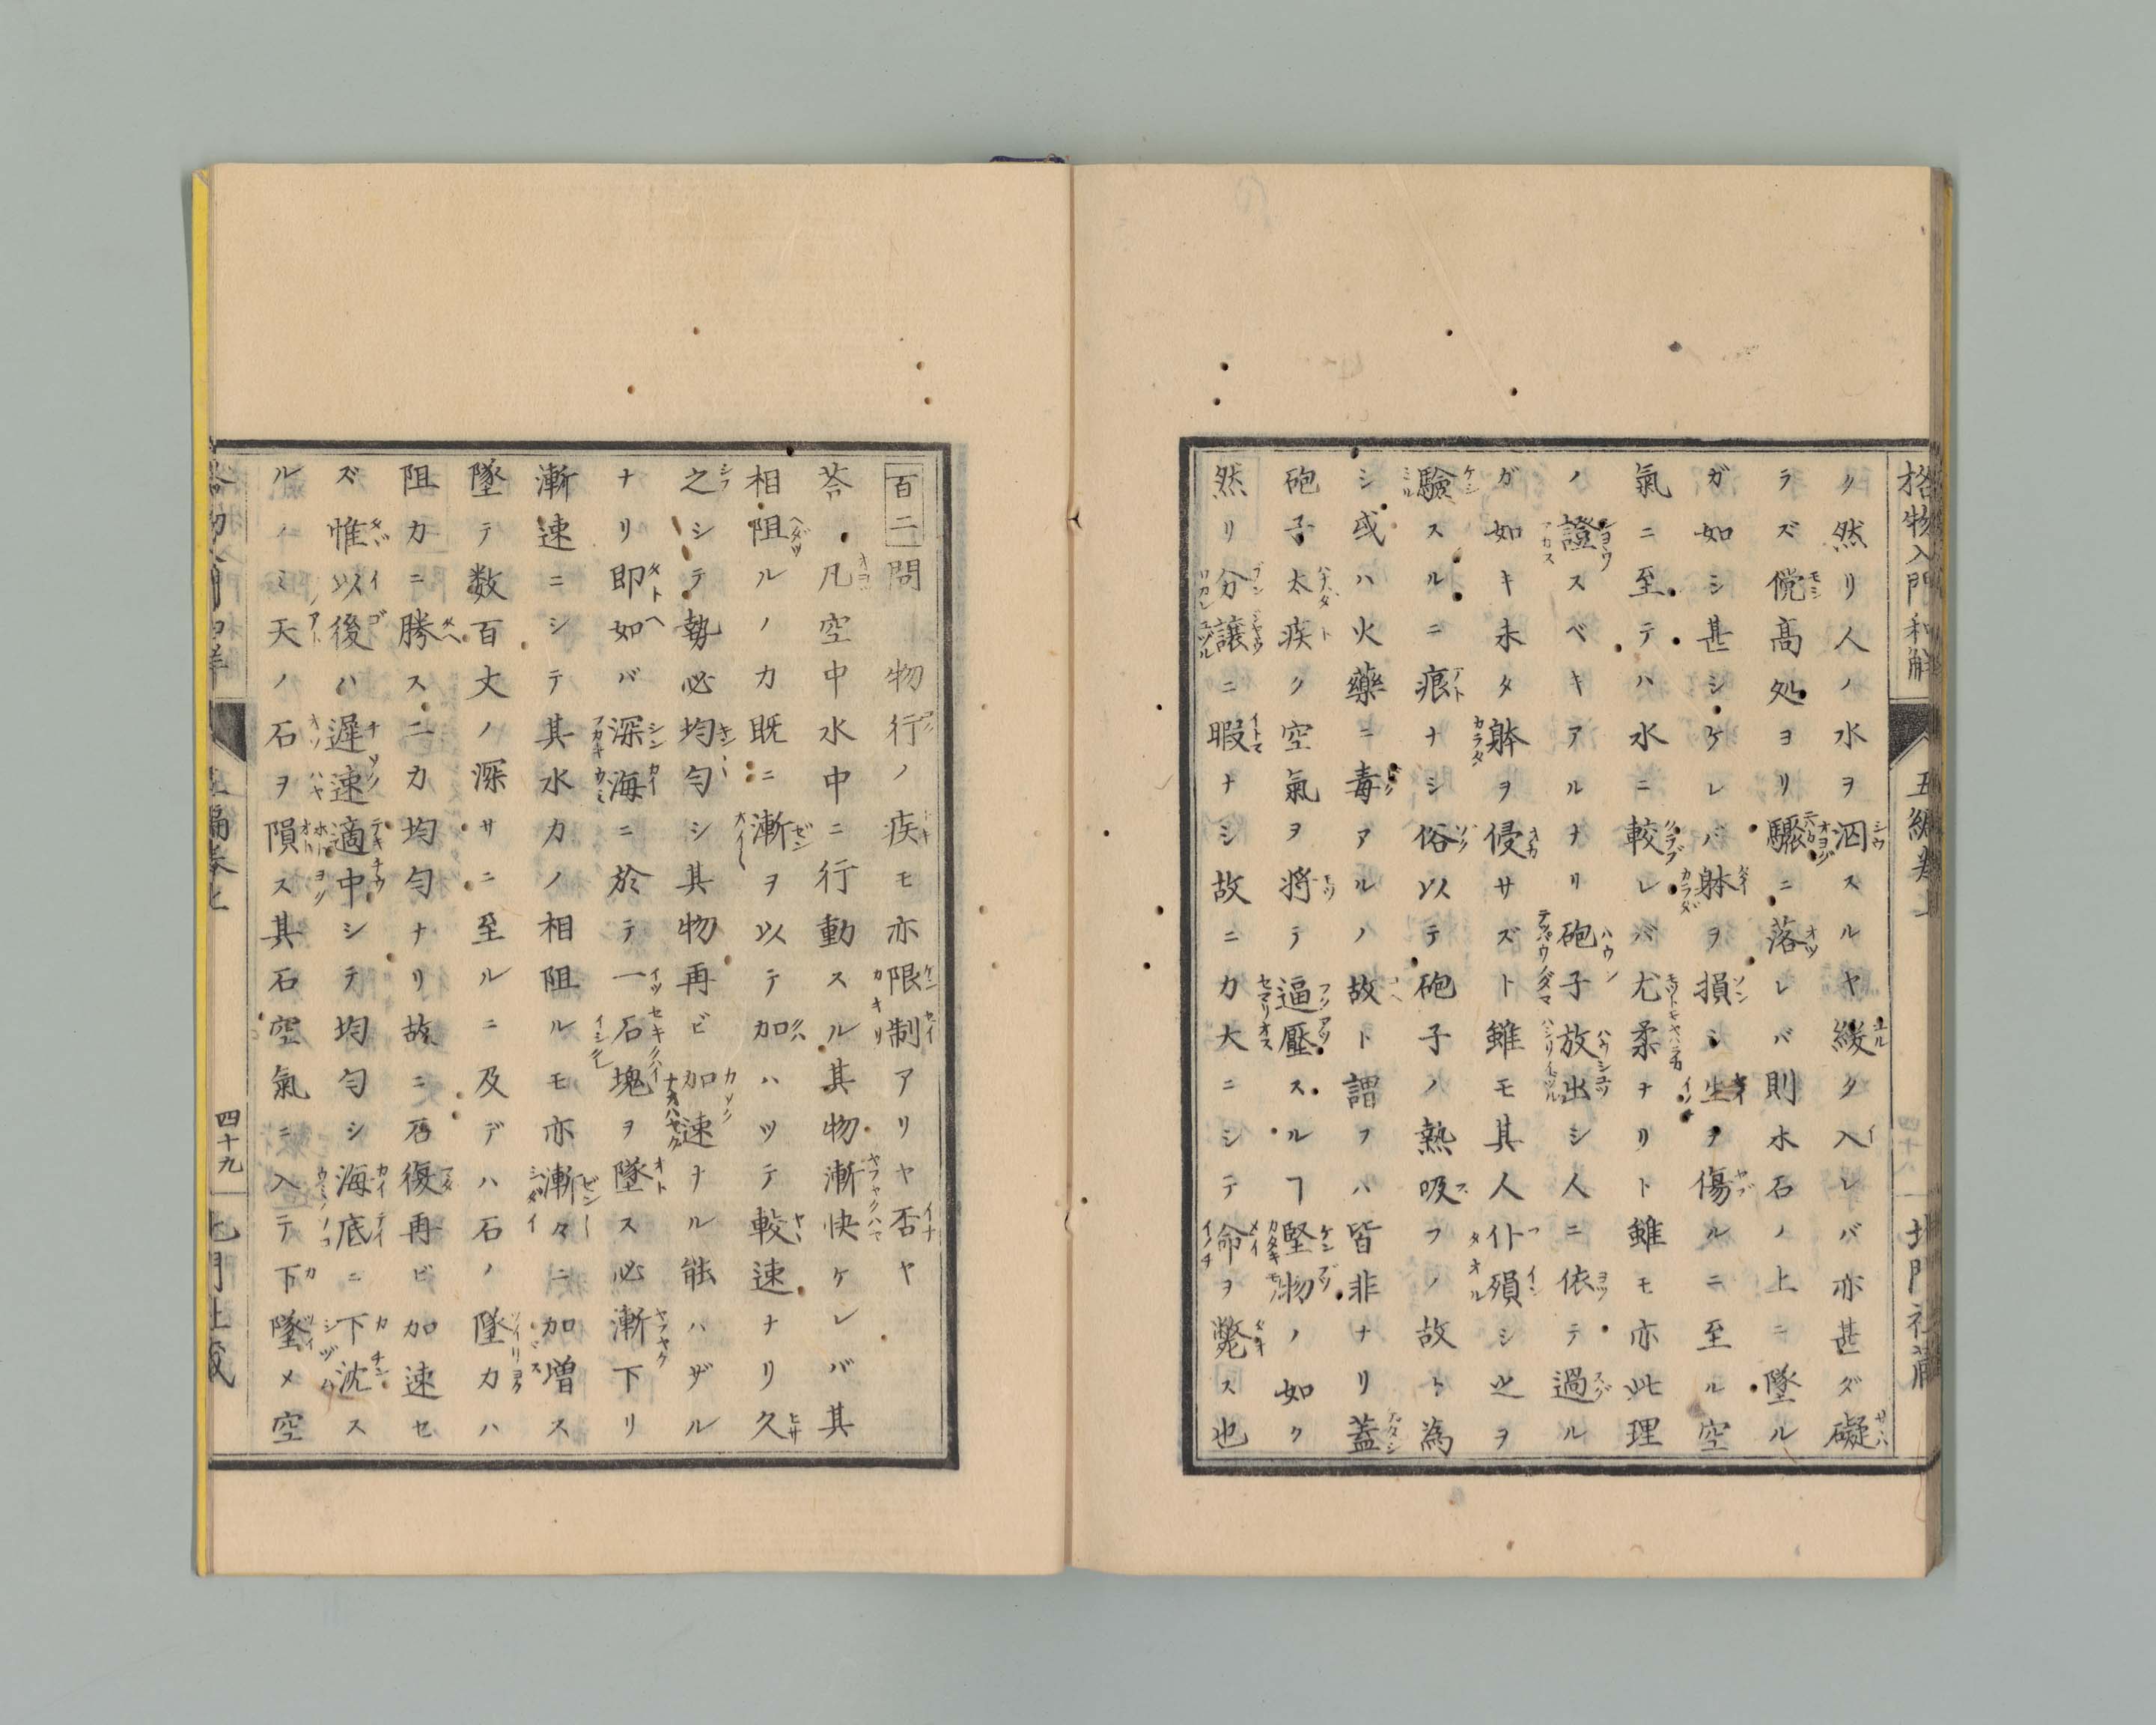 格物入門和解 五編卷上 北門社藏
ク然リ人ノ水ヲ泅スルヤ緩ク入レバ亦甚ダ礙
ラズ儻髙処ヨリ驟ニ落レバ則水石ノ上ニ墜ル
ガ如シ甚シケレバ躰ヲ損シ生ヲ傷ルニ至ル空
氣ニ至テハ水ニ較レバ尤柔ナリト雖モ亦此理
ノ證スベキアルナリ砲子放出シ人ニ依テ過ル
ガ如キ未タ躰ヲ侵サズト雖モ其人仆殞シ之ヲ
驗スルニ痕ナシ俗以テ砲子ノ熱吸フノ故ト為
シ或ハ火藥ニ毒アルノ故ト謂フハ皆非ナリ蓋
砲子太疾ク空氣ヲ将テ逼壓スルヿ堅物ノ如ク
然リ分讓ニ暇ナシ故ニ力大ニシテ命ヲ斃ス也
百二問 物行ノ疾モ亦限制アリヤ否ヤ
荅凡空中水中ニ行動スル其物漸快ケレバ其
相阻ルノ力既ニ漸ヲ以テ加ハツテ較速ナリ久
之シテ勢必均勻シ其物再ビ加速ナル能ハザル
ナリ即如バ深海ニ於テ一石塊ヲ墜ス必漸下リ
漸速ニシテ其水力ノ相阻ルモ亦漸々ニ加増ス
墜テ数百丈ノ深サニ至ルニ及デハ石ノ墜力ハ
阻力ニ勝ス二力均勻ナリ故ニ石復再ビ加速セ
ズ惟以後ハ遲速適中シテ均勻シ海底ニ下沈ス
ルノミ天ノ石ヲ隕ス其石空氣ニ入テ下墜メ空
四十九